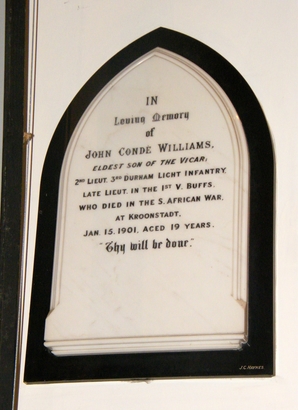 IN
Loving Memory
of
JOHN CONDE WILLIAMS,
ELDEST SON OF THE VICAR;
2ND LIEUT. 3RD DURHAM LIGHT INFANTRY,
LATE LIEUT. IN THE 1ST V. BUFFS.
WHO DIED IN THE S. AFRICAN WAR,
AT KROONSTADT,
JAN. 15. 1901, AGED 19 YEARS.
"Thy will be done."